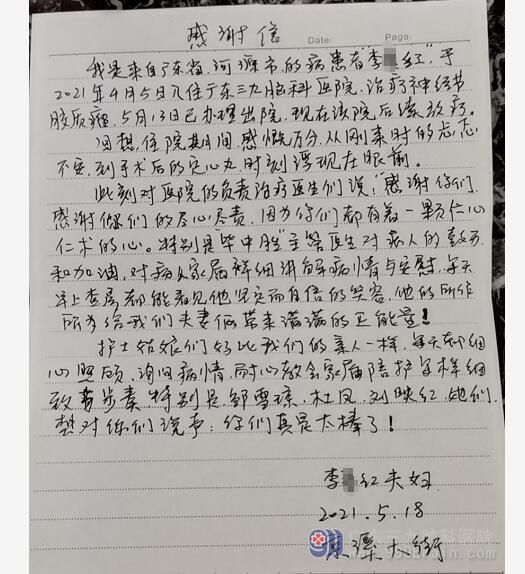 感谢信
Date: Page:
我是来自广东省,河源市,的病患者"李 红",于
2021年4月5日入住广东三九脑科医院,治疗神经节
胶质瘤,5月13日已办理出院,现在该院后续放疗。
回想住院期间,感慨万分,从刚来时的忐忑
不安,到手术后的定心丸,时刻浮现在眼前。
此刻对医院的负责治疗医生们说:"感谢你们,
感谢你们的尽心尽责,因为你们都有着一颗仁心
仁术的心。特别是"毕中胜"主管医生对病人的鼓励
和加油,对病人家属详细讲解病情与安慰,每天
早上查房都能看见他坚定而自信的笑容,他的所作
所为给我们夫妻俩带来满满的正能量!
护士姑娘们好比我们的亲人一样,每天都细
心照顾,询问病情,耐心教会家属陪护
致 步奏,特别是邹雪琼,杜凤,刘映红,她们,
想对你们说声:你们真是太棒了!
李 红夫妇
2021.5.18